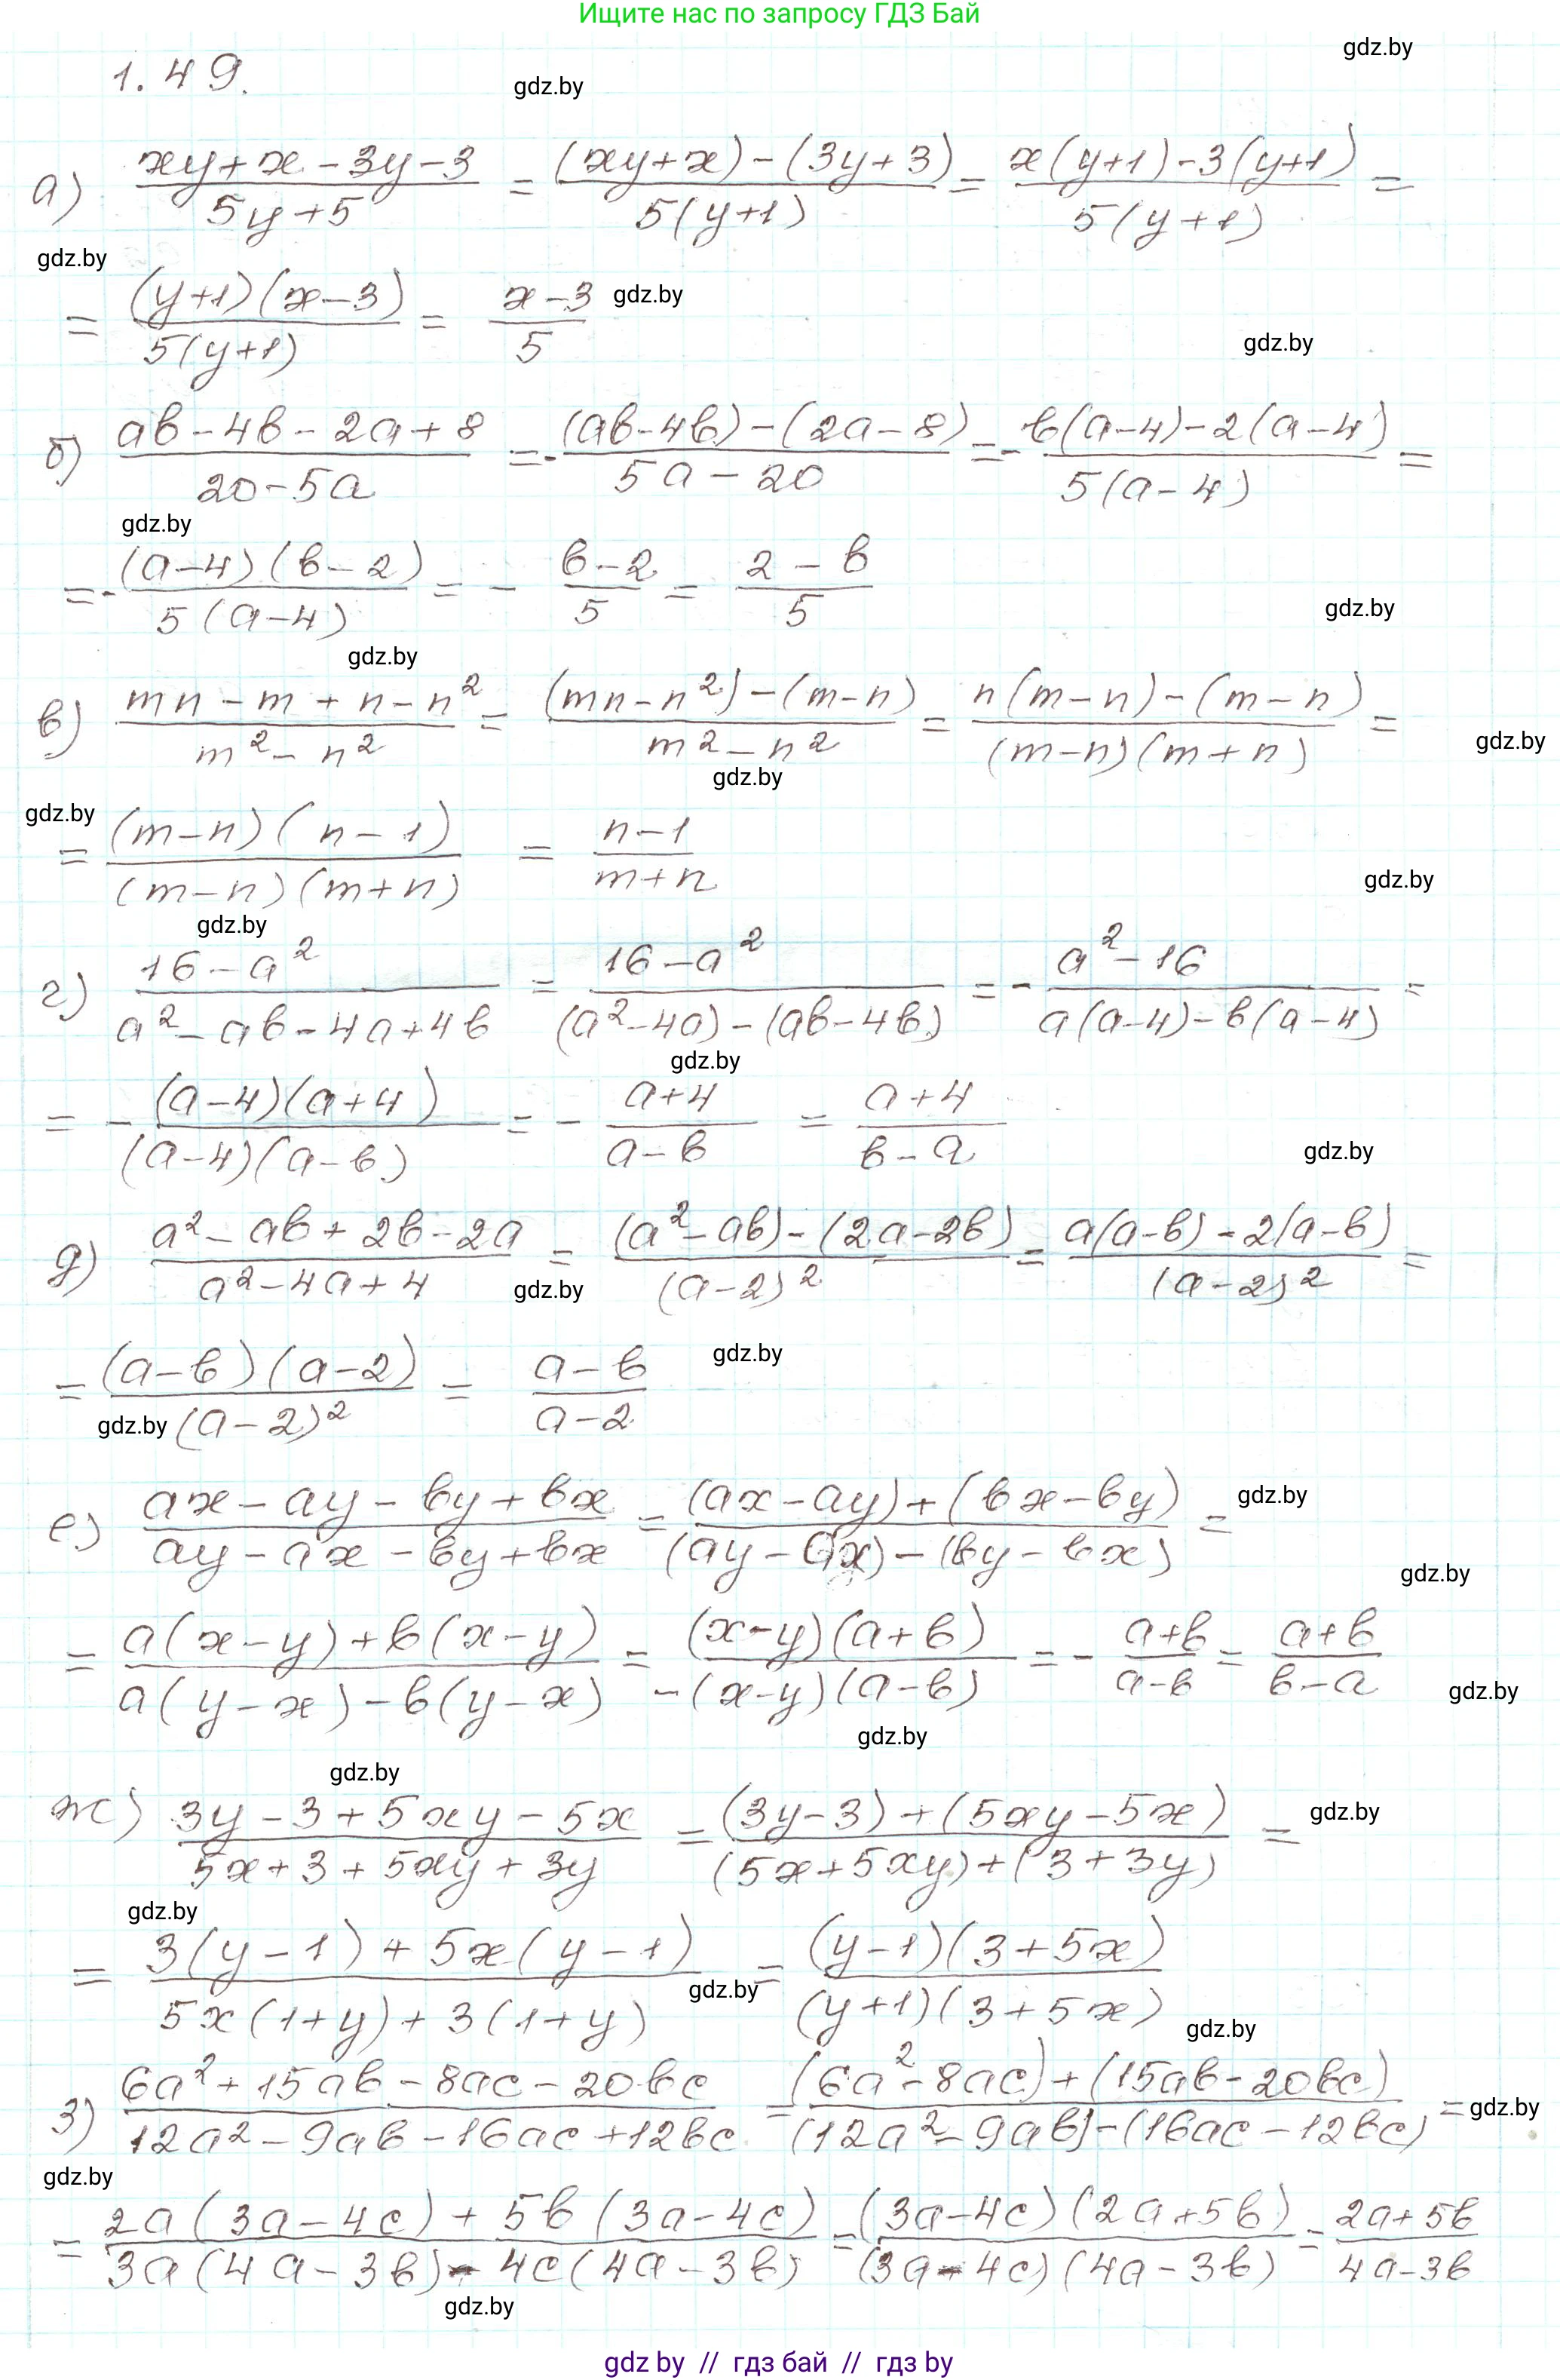 Ищите нас по запросу ГДЗ Бай
gdz.by
1.49.
gdz.by
а) (xy+x-3y-3)/(5y+5) = ((xy+x)-(3y+3))/(5(y+1)) = (x(y+1)-3(y+1))/(5(y+1)) =
gdz.by
= ((y+1)(x-3))/(5(y+1)) = (x-3)/5
gdz.by
gdz.by
б) (ab-4b-2a+8)/(20-5a) = -((ab-4b)-(2a-8))/(5a-20) = -(b(a-4)-2(a-4))/(5(a-4)) =
gdz.by
= -((a-4)(b-2))/(5(a-4)) = -(b-2)/5 = (2-b)/5
gdz.by
gdz.by
в) (mn-m+n-n²)/(m²-n²) = ((mn-n²)-(m-n))/(m²-n²) = (n(m-n)-(m-n))/((m-n)(m+n)) =
gdz.by
gdz.by
gdz.by
= ((m-n)(n-1))/((m-n)(m+n)) = (n-1)/(m+n)
gdz.by
gdz.by
г) (16-a²)/(a²-ab-4a+4b) = (16-a²)/((a²-4a)-(ab-4b)) = -(a²-16)/(a(a-4)-b(a-4)) =
gdz.by
= -((a-4)(a+4))/((a-4)(a-b)) = -(a+4)/(a-b) = (a+4)/(b-a)
gdz.by
д) (a²-ab+2b-2a)/(a²-4a+4) = ((a²-ab)-(2a-2b))/((a-2)²) = (a(a-b)-2(a-b))/((a-2)²) =
gdz.by
= ((a-b)(a-2))/((a-2)²) = (a-b)/(a-2)
gdz.by
gdz.by
е) (ax-ay-by+bx)/(ay-ax-by+bx) = ((ax-ay)+(bx-by))/((ay-ax)-(by-bx)) =
gdz.by
gdz.by
= (a(x-y)+b(x-y))/(a(y-x)-b(y-x)) = ((x-y)(a+b))/(-(x-y)(a-b)) = -(a+b)/(a-b) = (a+b)/(b-a)
gdz.by
gdz.by
gdz.by
ж) (3y-3+5xy-5x)/(5x+3+5xy+3y) = ((3y-3)+(5xy-5x))/((5x+5xy)+(3+3y)) =
gdz.by
gdz.by
= (3(y-1)+5x(y-1))/(5x(1+y)+3(1+y)) = ((y-1)(3+5x))/((y+1)(3+5x))
gdz.by
gdz.by
з) (6a²+15ab-8ac-20bc)/(12a²-9ab-16ac+12bc) = ((6a²-8ac)+(15ab-20bc))/((12a²-9ab)-(16ac-12bc)) =
gdz.by
gdz.by
= (2a(3a-4c)+5b(3a-4c))/(3a(4a-3b)-4c(4a-3b)) = ((3a-4c)(2a+5b))/((3a-4c)(4a-3b)) = (2a+5b)/(4a-3b)
gdz.by
gdz by // гдз бай // гдз by